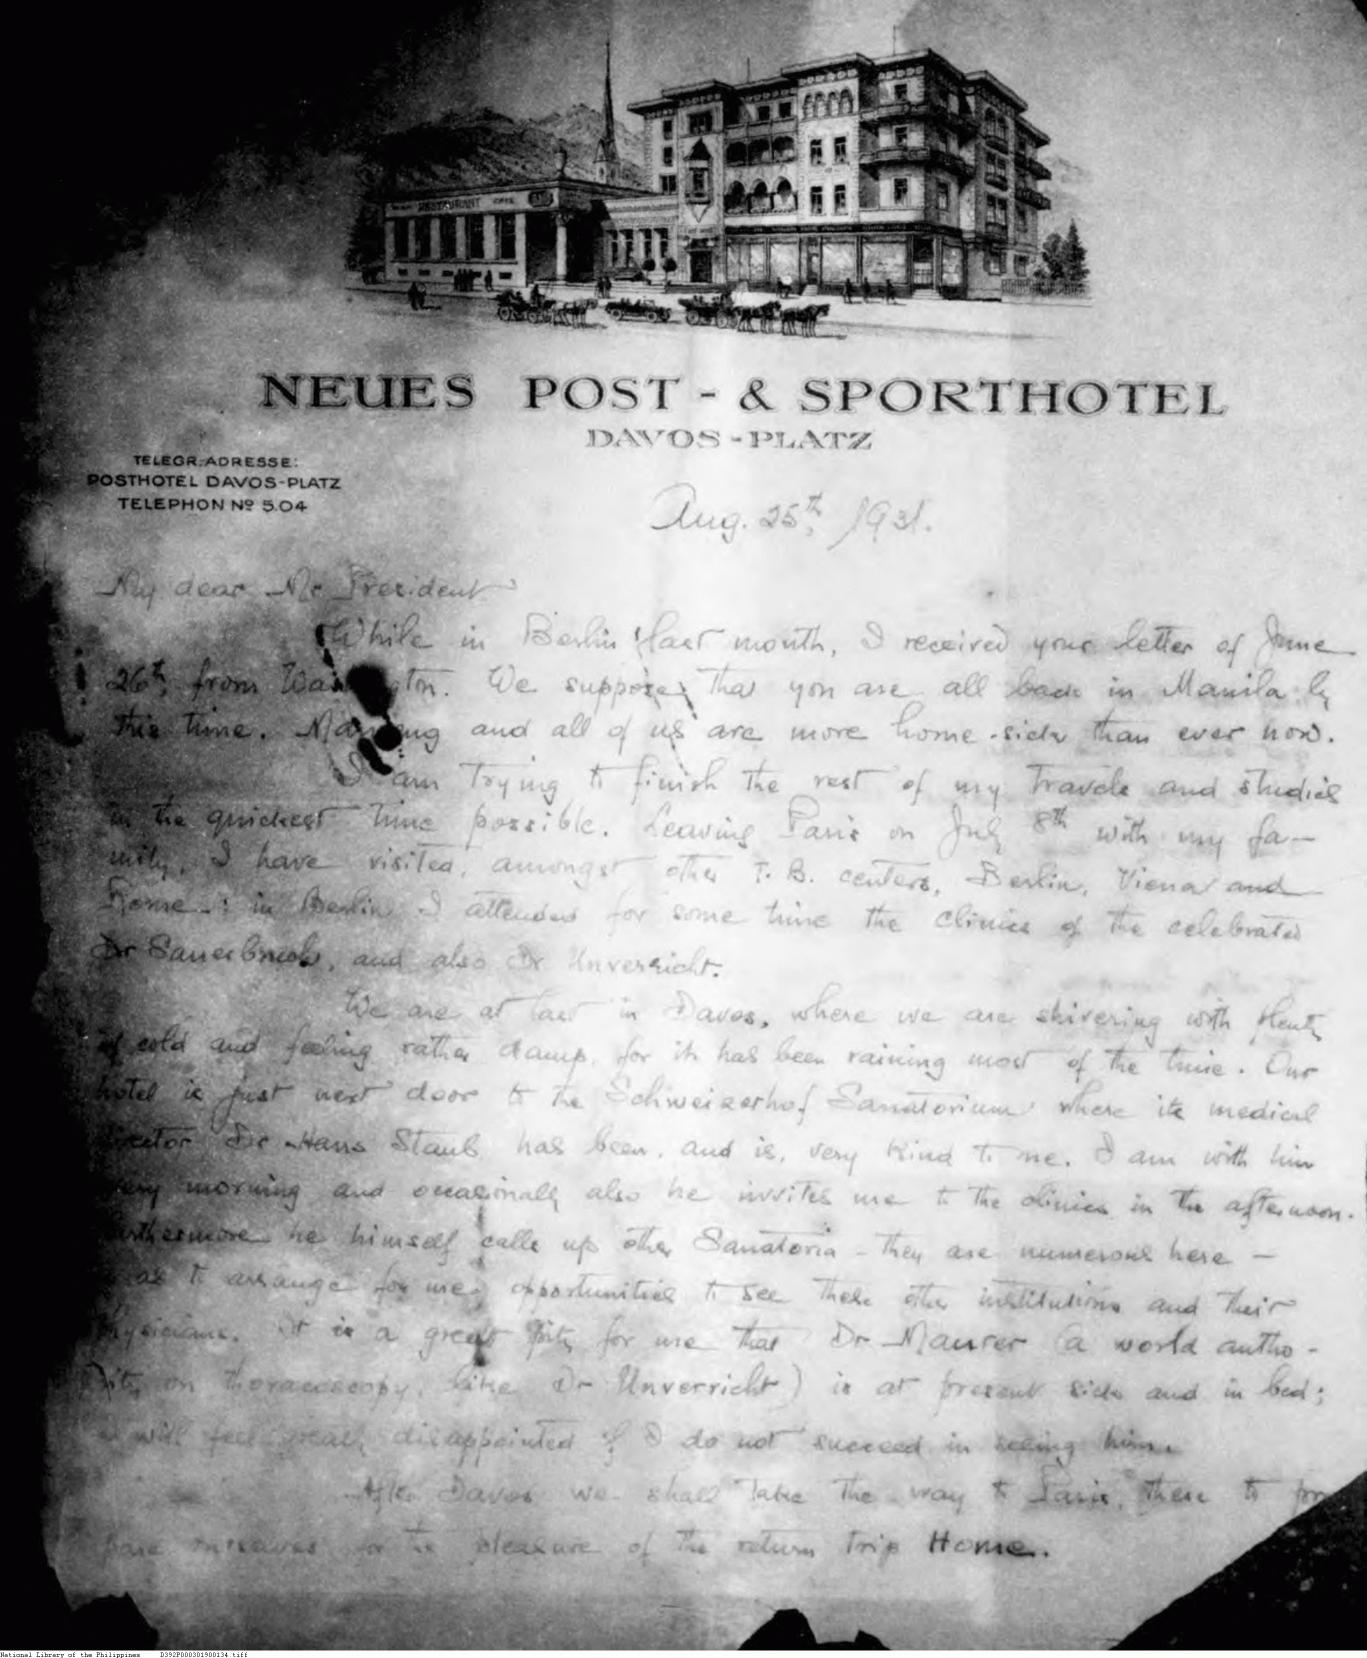 RESTAURANT CAFE
NEUES POST - & SPORTHOTEL
DAVOS - PLATZ
TELEGR. ADRESSE:
POSTHOTEL DAVOS-PLATZ
TELEPHON Nº 5.04
Aug. 25th, 1931.
My dear Mr. President
While in Berlin last month, I received your letter of June
26th, from Washington. We suppose that you are all back in Manila by
this time. and all of us are more home-sick than ever now.
I am trying to finish the rest of my travels and studies
in the quickest time possible. Leaving Paris on July 8th with my fa-
mily, I have visited, amongst other T. B. centers, Berlin, Viena and
Rome.: in Berlin I attended for some time the clinics of the celebrated
Dr Sauerbruch, and also Dr Unverricht.
We are at last in Davos, where we are shivering with plenty
of cold and feeling rather damp, for it has been raining most of the time. Our
hotel is just next door to the Schweizerhof Sanatorium where its medical
director Dr Hans Staub has been, and is, very kind to me. I am with him
every morning and occasionaly also he invites me to the clinics in the afternoon.
Furthermore he himself calls up other Sanatoria - they are numerous here -
so as to arrange for me opportunities to see these other institutions and their
physicians. It is a great pity for me that Dr Maurer (a world autho-
rity on thoracoscopy, like Dr Unverricht) is at present sick and in bed;
I will feel greatly disappointed if I do not succeed in seeing him.
After Davos we shall take the way to Paris, there to pre
pare ourselves for the pleasure of the return trip Home.
National Library of the Philippines D392P000301900134.tiff